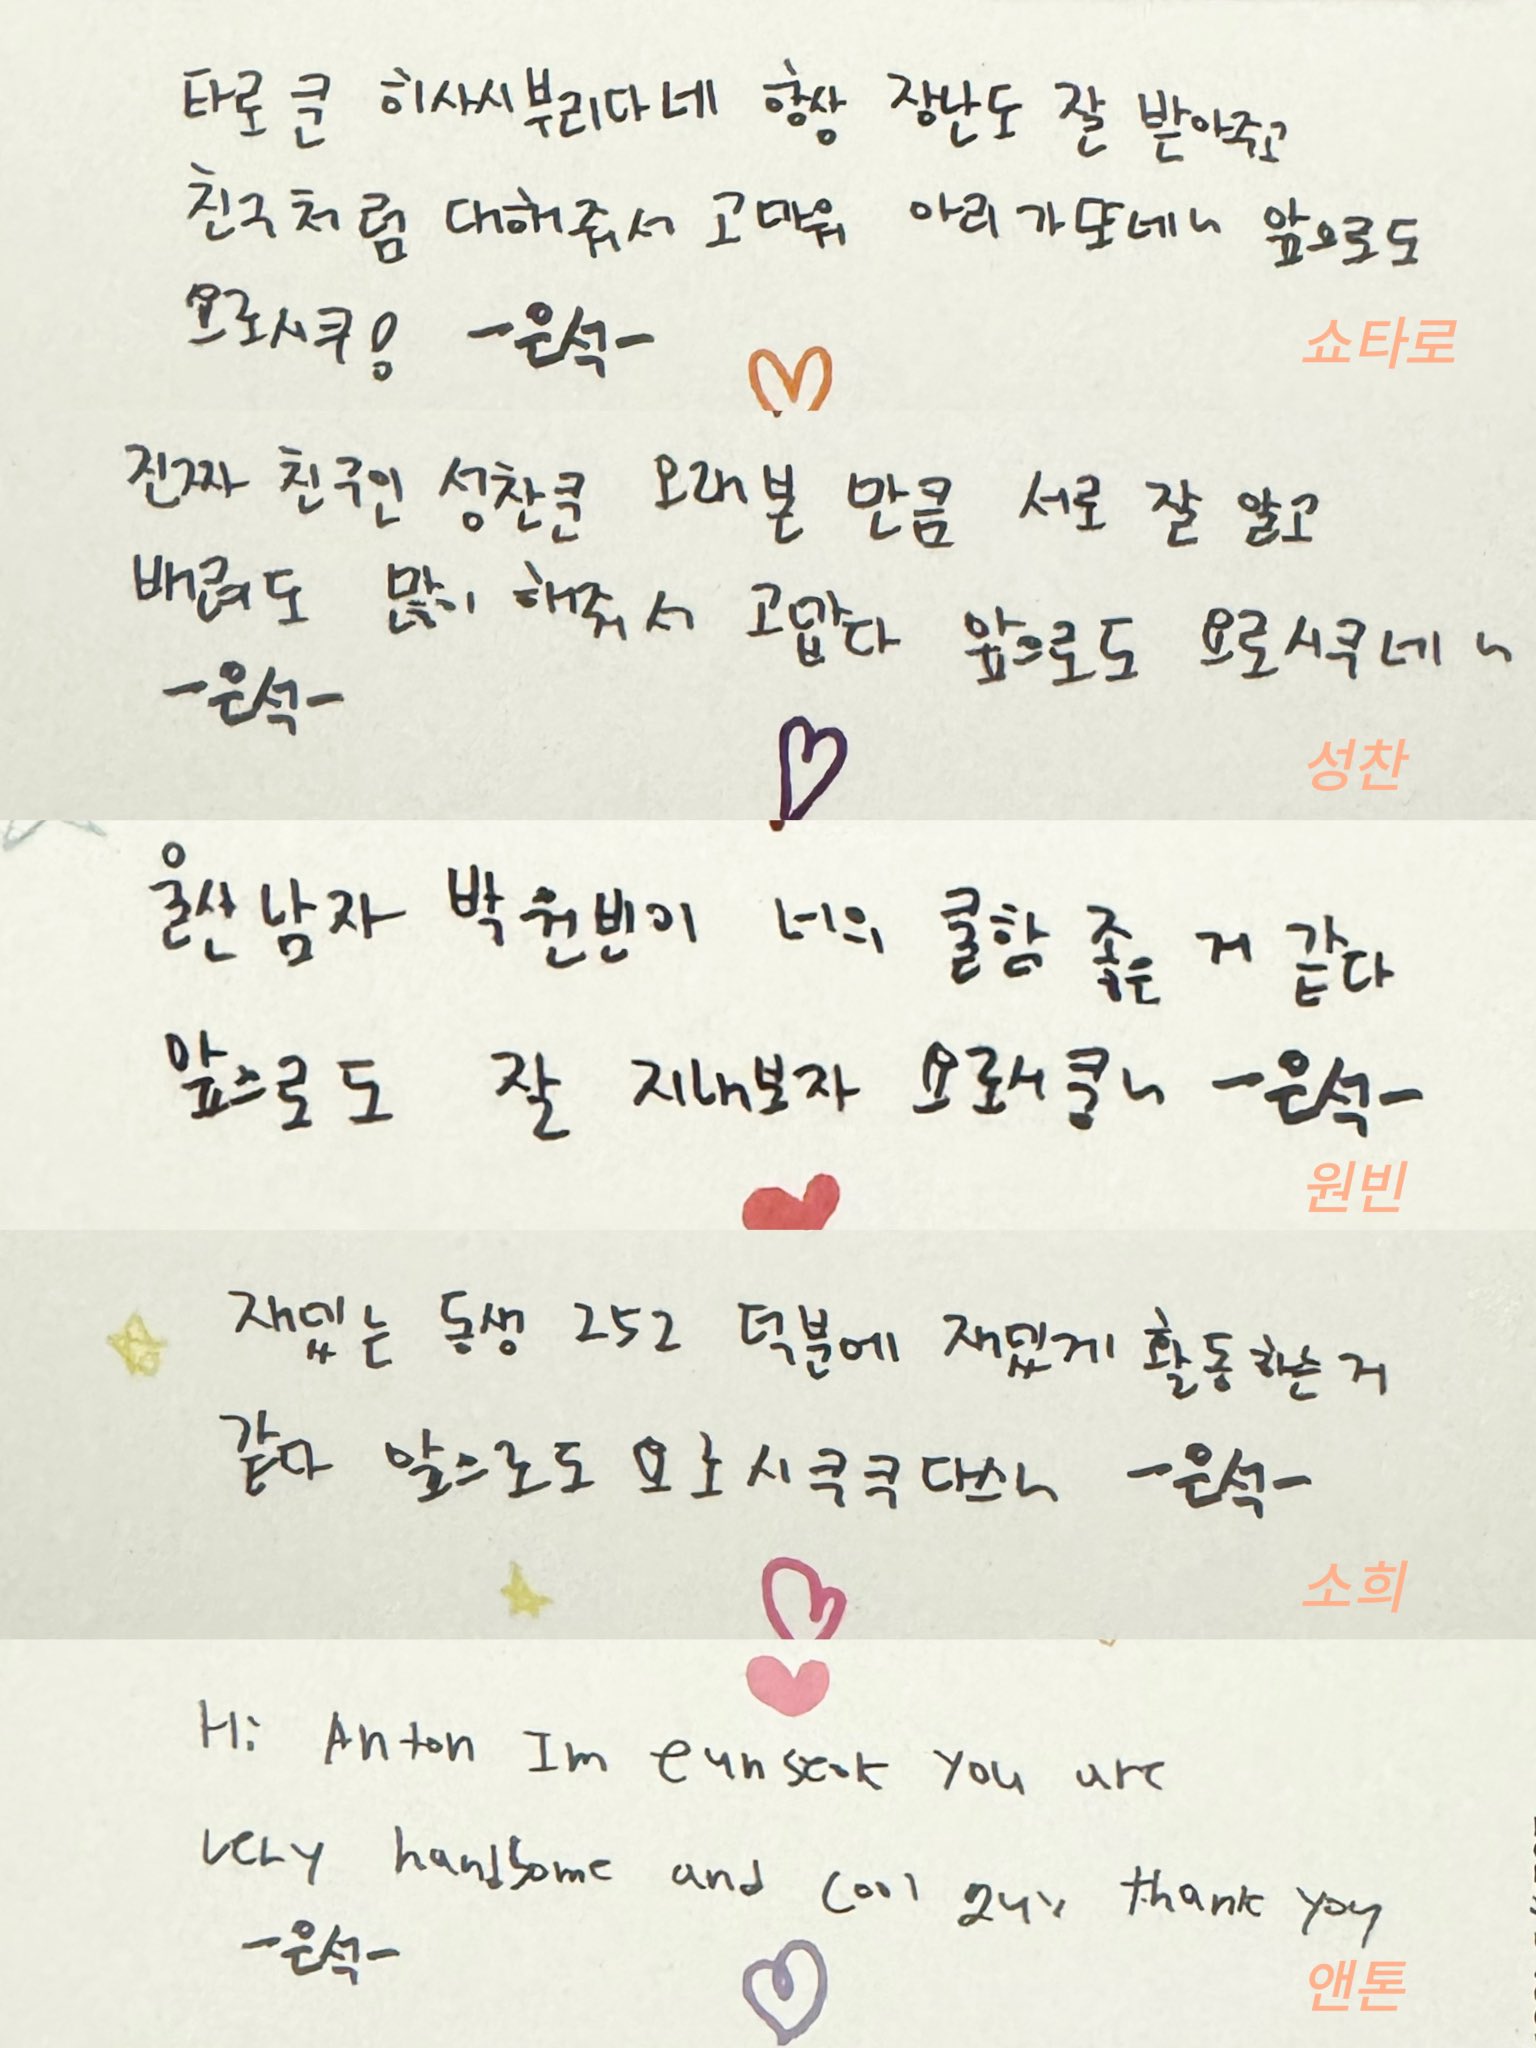 타로쿤 히사시부리다네 항상 장난도 잘 받아주고
친구처럼 대해줘서 고마워 아리가또네~ 앞으로도
요로시쿠! -은석-
쇼타로
진짜 친구인 성찬쿤 오래본 만큼 서로 잘 알고
배려도 많이 해줘서 고맙다 앞으로도 요로시쿠네~
-은석-
성찬
울산남자 박원빈이 너의 쿨함 좋은 거 같다
앞으로도 잘 지내보자 요로시쿨~ -은석-
원빈
재밌는 동생 252 덕분에 재밌게 활동하는거
같다 앞으로도 요로시쿠쿠다스~ -은석-
소희
Hi Anton Im eunseok you are
very handsome and cool guy thank you
-은석-
앤톤